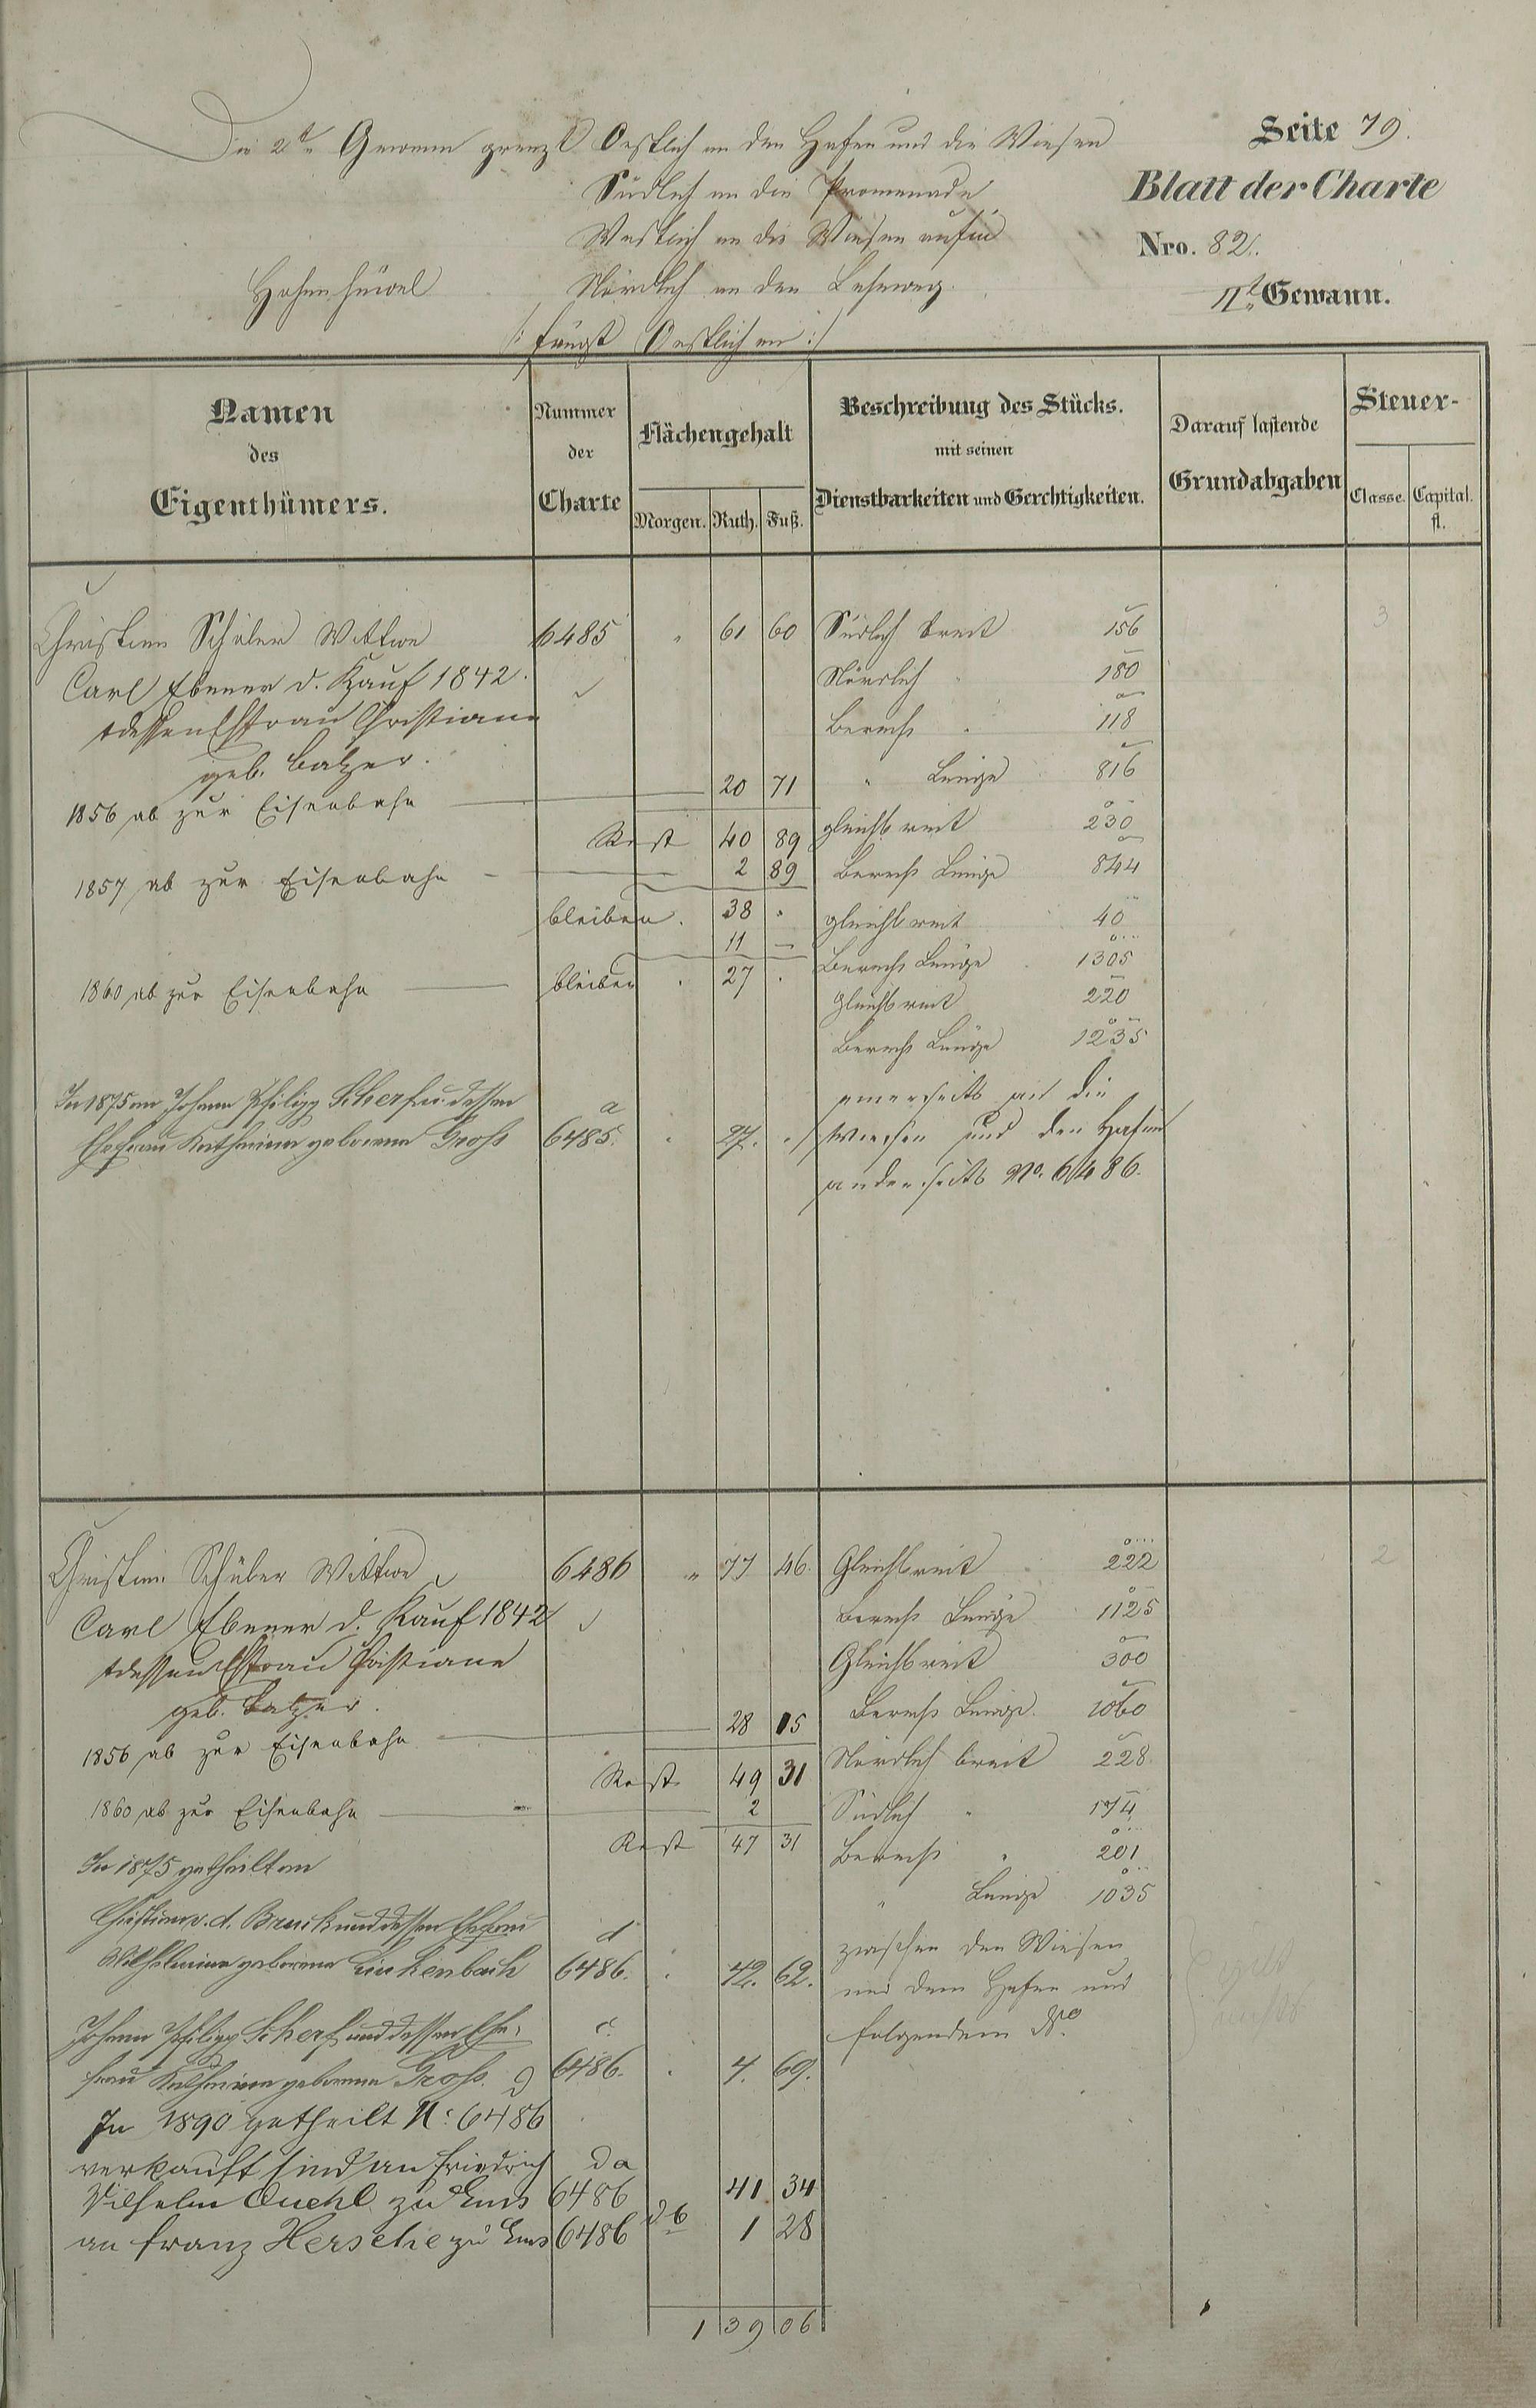 Die 2te Gewann grenzt Oestlich an den Hafen und die Wiesen
Südlich an die Promenade
Westlich an die Wiesen
Nördlich an den Leheweg.
/: fängt Oestlich an :/
Seite 79.
Blatt der Charte
Nro. 82.
IIte Gewann.
Namen
des
Eigenthümers.
Nummer
der
Charte
Flächengehalt
Morgen. Ruth. Fuß.
Beschreibung des Stücks.
mit seinen
Dienstbarkeiten und Gerechtigkeiten.
Darauf lastende
Grundabgaben
Steuer-
Classe. Capital.
fl.
Wittwe 6485 " 61 60 Südlich breit 156 3
Carl Ebener d. Kauf 1842. Nördlich " 180
Ehefrau Christiane Berechs " 118
geb. Balzer.
20 71 " Länge 816
1856 ab zur Eisenbahn
Rest 40 89 gleichbreit 230
2 89 Berechs Länge 844
1857 ab zur Eisenbahn
bleiben. 38 " gleichbreit 40
11 — Berechs Länge 1305
1860 ab zur Eisenbahn bleiben 27 . gleichbreit 220
Berechs Länge 1235
In 1875 an Johann Philipp Scherf u. dessen
Ehefrau Katharina geborene Gross a 6485. " 27. "
einerseits die
Wiesen und den Hafen
anderseits No. 6486.
Wittwe 6486 " 77 46. Gleichbreit 222 2
Carl Ebener d. Kauf 1842 Berechs Länge 1125
Ehefrau Christiane Gleichbreit 300
geb. Balzer. 28 15 Berechs Länge. 1060
1856 ab zur Eisenbahn
Rest 49 31 Nördlich breit 228
1860 ab zur Eisenbahn 2 Südlich " 174
Rest 47 31 Berechs " 201
In 1875 getheilt an
" Länge 1035
Bruck und dessen Ehefrau d zwischen den Wiesen
Wilhelmine geborene Linkenbach 6486. . 42. 62. und dem Hafen und
Johann Philipp Scherf und dessen Ehe- c. folgendem No
frau Katharina geborene Gross. 6486. . 4. 69.
In 1890 getheilt No: 6486
verkauft sind an Friedrich da
Wilhelm zu Ems 6486 41 34
an Franz zu Ems 6486 db 1 28
1 39 06